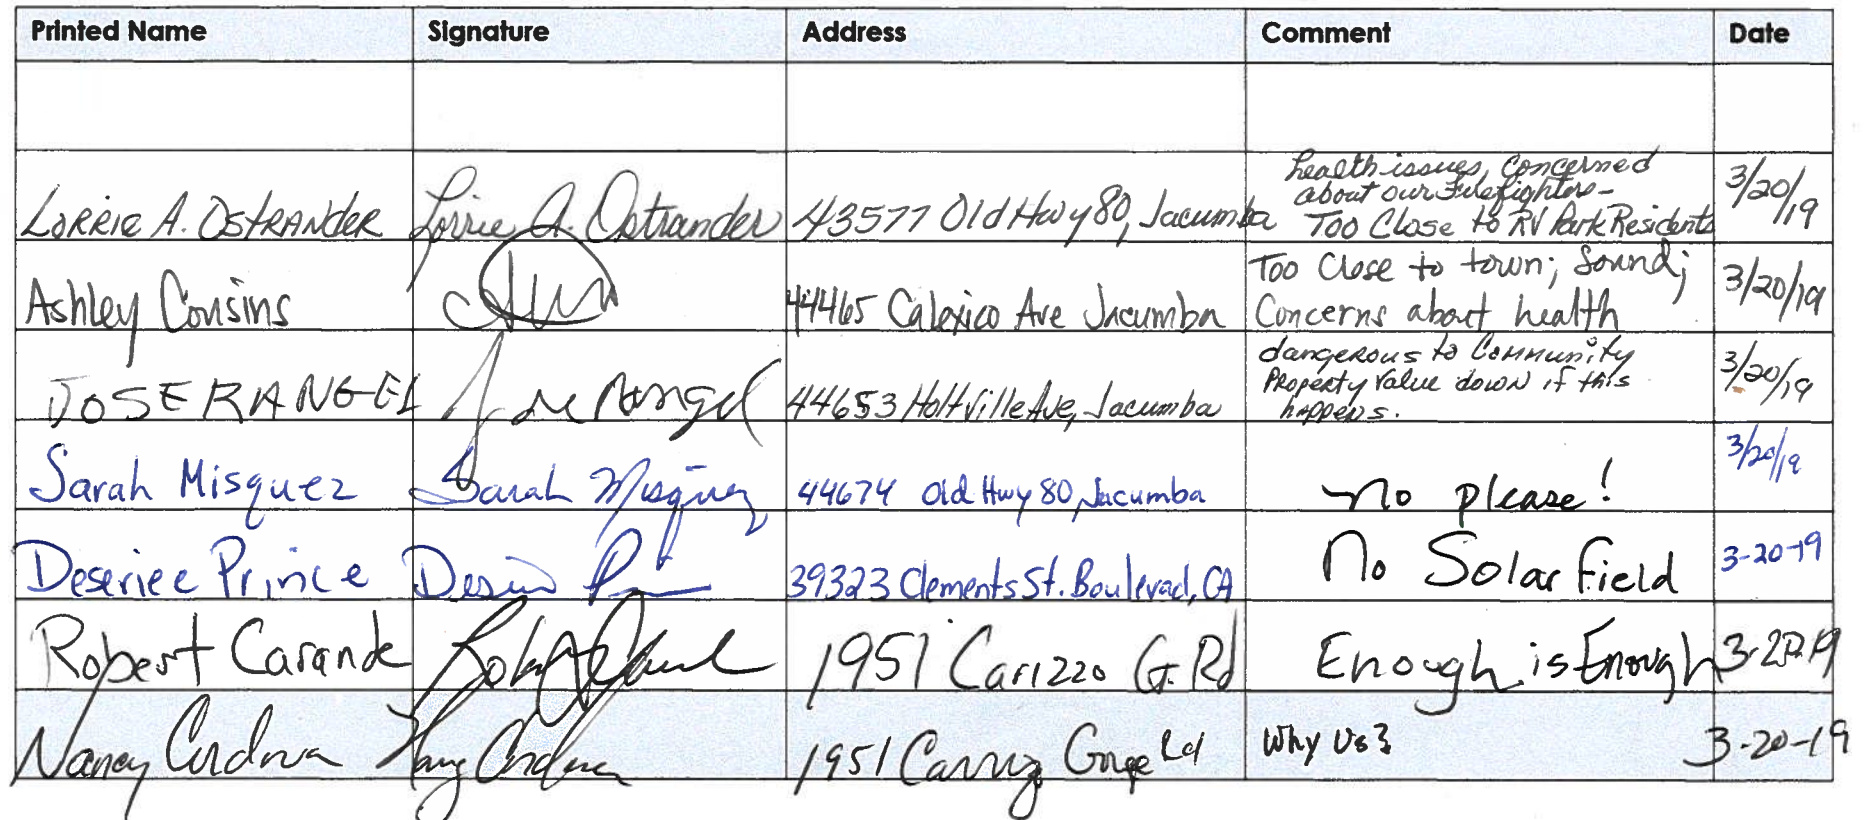 Printed Name Signature Address Comment Date
Lorrie A. Ostrander Lorrie A. Ostrander 43577 Old Hwy 80, Jacumba health issues, Concerned
about our Firefighters-
Too Close to RV Park Residents 3/20/19
Ashley Cousins 44465 Calexico Ave Jacumba Too Close to town; Sound;
Concerns about health 3/20/19
JOSE RANGEL Jose Rangel 44653 Holtville Ave, Jacumba dangerous to Community
Property Value down if this
happens. 3/20/19
Sarah Misquez Sarah Misquez 44674 Old Hwy 80, Jacumba No please! 3/20/19
Deseriee Prince 39323 Clements St. Boulevard, CA No Solar field 3-20-19
Robert Carande 1951 Carizzo G. Rd Enough is Enough 3-20-19
Nancy Cordova Nancy Cordova 1951 Carrizo Gorge Rd Why Us? 3-20-19